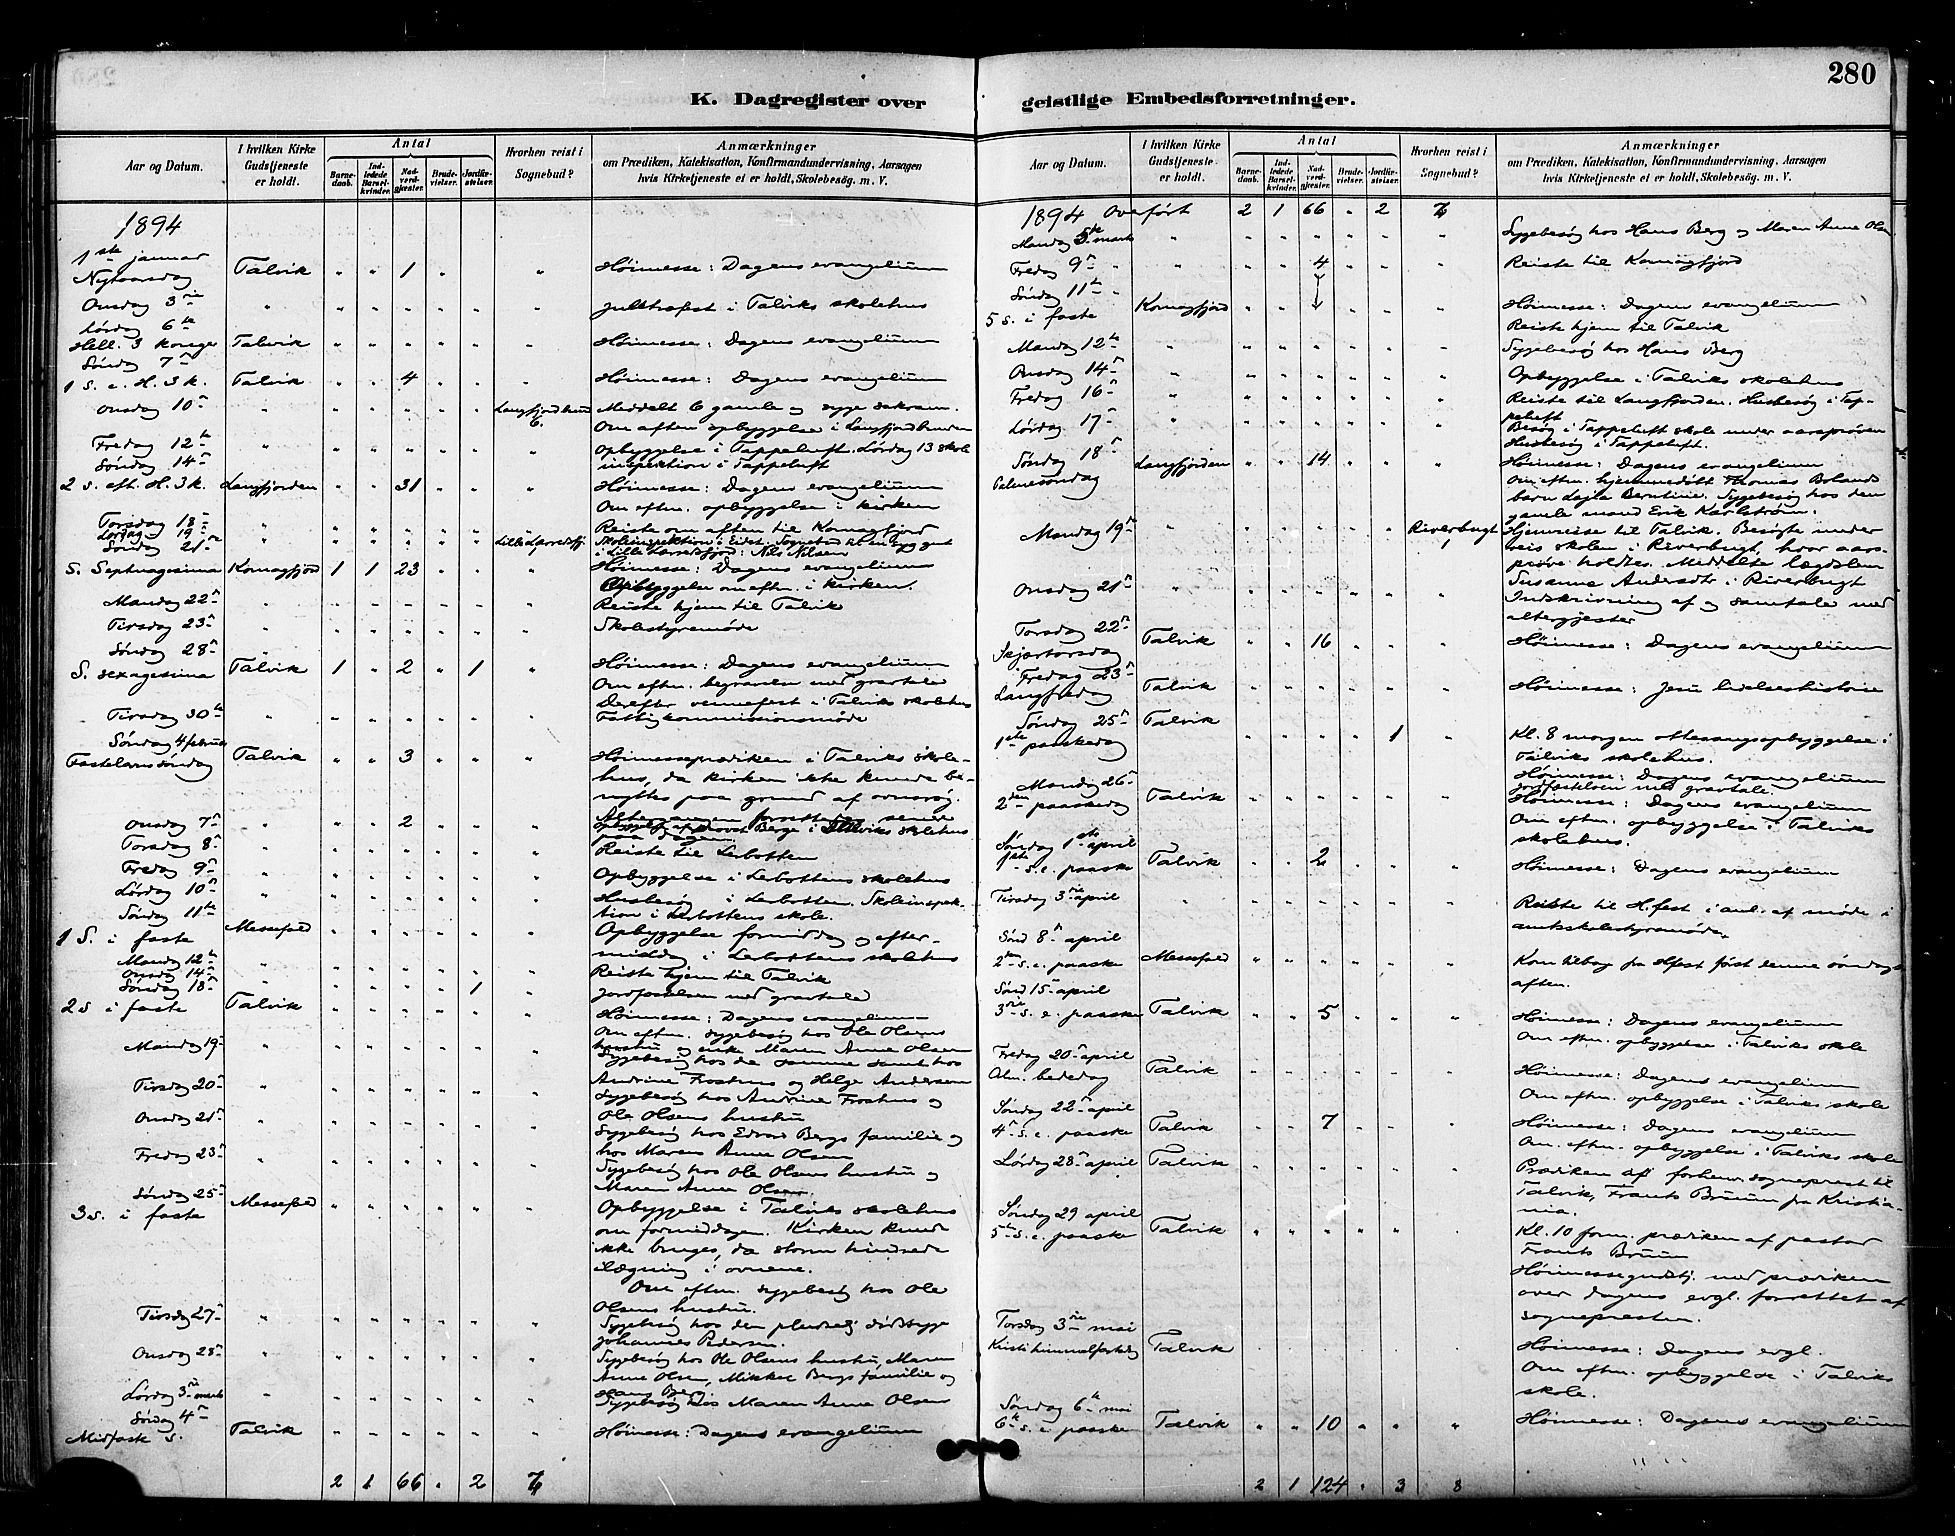 280
K. Dagregister over
Aar og Datum.
I hvilken Kirke Gudstjeneste er holdt.
Antal
Barnedaab.
Indledede Barselkvinder.
Nadverdgjester.
Brudevielser.
Jordfæstelser.
Hvorhen reist i Sognebud?
Anmærkninger
om Prædiken, Katekisation, Konfirmandundervisning, Aarsagen
hvis Kirketjeneste ei er holdt, Skolebesög. m. V.
1894
1ste januar
Nytaarsdag Talvik " " 1 " " Høimesse: Dagens evangelium
Onsdag 3die " " " " " " " Juletræfest i Talviks skolehus
Lørdag 6te
Hell. 3 konger Talvik " " " " " " Høimesse: Dagens evangelium
Søndag 7n
1 S. e. H. 3 k. Talvik " " 4 " " " Høimesse: Dagens evangelium
Onsdag 10n " " " " " " Langfjordbunn 6. Meddelt 6 gamle og syge sakram.
Om aften opbyggelse i Langfjordbunden
Fredag 12te " Opbyggelse i Tappeluft. Lørdag 13 skole
inspektion i Tappeluft
Søndag 14n
2 s. eft. H. 3 k. Langfjorden " " 31 " " " Høimesse: Dagens evangelium
Om eftm. opbyggelse i kirken
Torsdag 18n " Reiste om aften til Komagfjord
Lørdag 19n Lille Lerredsfj. Skoleinspektion i Eidet. Sognebud til en syg gut
i Lille Lerredsfjord: Nils Nilsen
Søndag 21n
S. Septuagesima Komagfjord 1 1 23 " " " Høimesse: Dagens evangelium
Opbyggelse om eftm. i kirken.
Mandag 22n " Reiste hjem til Talvik
Tirsdag 23n " Skolestyremøde
Søndag 28n
S. sexagesima Talvik 1 " 2 " 1 " Høimesse: Dagens evangelium
Om eftm. begravelse med gravtale
Derefter vennefest i Talviks skolehus
Tirsdag 30te " Fattigkommissionsmøde
Søndag 4 februar
Fastelavns søndag Talvik " " 3 " " " Høimesseprædiken i Talviks skole-
hus, da kirken ikke kunde be-
nyttes paa grund af ovnsrøg.
Altergangen forrettedes senere
paa dagen
Onsdag 7n " " " 2 " " " opbyggelse af provst Berge i Talviks skolehus
Torsdag 8n " Reiste til Lerbotten
Fredag 9n " Opbyggelse i Lerbottens skolehus
Lørdag 10n " Husbesøg i Lerbotten. Skoleinspek-
tion i Lerbottens skole.
Søndag 11te
1 S. i faste Messefald " Opbyggelse formiddag og efter-
middag i Lerbottens skolehus
Mandag 12te " Reiste hjem til Talvik
Onsdag 14n " " " " " 1 " Jordfæstelsen med gravtale
Søndag 18n
2 s i faste Talvik " Høimesse: Dagens evangelium
Om eftm. sygebesøg hos Ole Olsens
hustru og enke Maren Anne Olsen
Mandag 19n " Sygebesøg hos de samme samt hos
Andrine Frosthus og Helge Andersen
Tirsdag 20n " Sygebesøg hos Andrine Frosthus og
Ole Olsens hustru
Onsdag 21n " Sygebesøg hos Edvard Bergs familie og
hos Maren Anne Olsen
Fredag 23n " Sygebesøg hos Ole Olsens hustru og
Maren Anne Olsen.
Søndag 25n
3 s. i faste Messefald " Opbyggelse i Talviks skolehus
om formiddagen. Kirken kunde
ikke bruges, da storm hindrede
ilægning i ovnene.
Om eftm. sygebesøg hos Ole
Olsens hustru.
Tirsdag 27n " Sygebesøg hos den pludselig dødssyge
Johannes Pedersen.
Onsdag 28n " Sygebesøg hos Ole Olsens hustru, Maren
Anne Olsen, Mikkel Bergs familie og
Hans Berg
Lørdag 3die marts " Sygebesøg hos Maren Anne Olsen
Søndag 4n
Midfaste s. Talvik " Høimesse: Dagens evangelium
2 1 66 " 2 7
geistlige Embedsforretninger.
Aar og Datum.
I hvilken Kirke Gudstjeneste er holdt.
Antal
Barnedaab.
Indledede Barselkvinder.
Nadverdgjester.
Brudevielser.
Jordfæstelser.
Hvorhen reist i Sognebud?
Anmærkninger
om Prædiken, Katekisation, Konfirmandundervisning, Aarsagen
hvis Kirketjeneste ei er holdt, Skolebesög. m. V.
1894 Overført 2 1 66 " 2 7
Mandag 5te marts " Sygebesøg hos Hans Berg og Maren Anne Olsen
Fredag 9n " " " 4 " " " Reiste til Komagfjord
Søndag 11te
5 s. i faste Komagfjord " Høimesse: Dagens evangelium
Reiste hjem til Talvik
Mandag 12te " Sygebesøg hos Hans Berg
Onsdag 14n " Opbyggelse i Talviks skolehus
Fredag 16n " Reiste til Langfjorden. Husbesøg i Tap-
peluft
Lørdag 17n " Besøg i Tappeluft skole under aarsprøven
Husbesøg i Tappeluft.
Søndag 18n
Palmesøndag Langfjorden " " 14 " " " Høimesse: Dagens evangelium
Om eftm. hjemmedøbt Thomas Bolands
barn Lajla Berntine. Sygebesøg hos den
gamle mand Erik Karlstrøm.
Mandag 19de " " " " " " Riverbugt 1 Hjemreise til Talvik. Besøgte under
veis skolen i Riverbugt, hvor aars-
prøve holdtes. Meddelte lægdslem
Susanna Andersdtr i Riverbugt
Onsdag 21n " Indskrivning af og samtale med
altergjester
Torsdag 22n
Skjærtorsdag Talvik " " 16 " " " Høimesse: Dagens evangelium
Fredag 23n
Langfredag Talvik " Høimesse: Jesu lidelseshistorie
Søndag 25n Talvik
1ste paaskedag " " " " 1 " Kl. 8 morgen ottesangsopbyggelse i
Talviks skolehus.
Høimesse: Dagens evangelium
Jordfæstelsen med gravtale.
Mandag 26n
2den paaskedag Talvik " Høimesse: Dagens evangelium
Om eftm. opbyggelse i Talviks
skolehus.
Søndag 1ste april
1ste s. e. paaske Talvik " " 2 " " " Høimesse: Dagens evangelium
Tirsdag 3die april " Reiste til H.fest i anl. af møde i
amtsskolestyremøde.
Sønd 8n april
2den s. e. paaske Messefald " Kom tilbage fra Hfest først denne søndags
aften.
Sønd 15n april
3die s. e. paaske Talvik " " 5 " " " Høimesse: Dagens evangelium
Om eftm. opbyggelse i Talviks skole
Fredag 20n april
Alm. bededag Talvik " Høimesse: Dagens evangelium
Om eftm. opbyggelse i Talviks skole
Søndag 22n april
4n s. e. paaske Talvik " " 7 " " " Høimesse: Dagens evangelium
Om. eftm. opbyggelse i Talviks skole
Lørdag 28n april Talvik " Prædiken af forhenv. sogneprest til
Talvik, Frants Bruun fra Kristia-
nia.
Søndag 29 april
5te s. e. paaske Talvik " Kl. 10 form. prædiken af pastor
Frants Bruun
Høimessegudstj. med prædiken
over dagens evgl. forrettet af
sognepresten.
Torsdag 3die mai
Kristi himmelfartsdag Talvik " Høimesse: Dagens evgl.
Om eftm. opbyggelse i Talviks
skole.
Søndag 6te mai
6te s. e. paaske Talvik " " 10 " " " Høimesse: Dagens evangelium
2 1 124 " 3 8